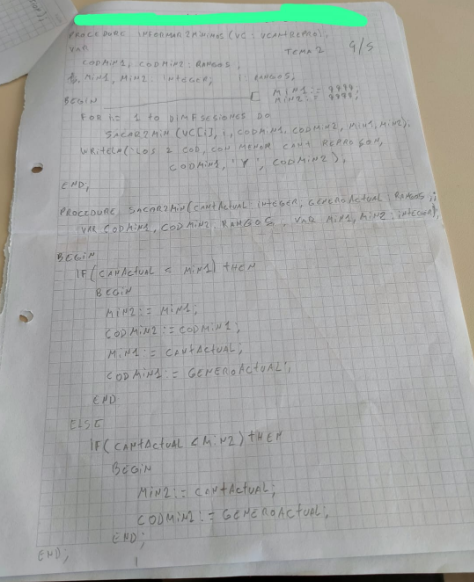 PROCEDURE INFORMAR2MINIMOS (VC: VCANTREPRO);
VAR
TEMA 2 4/5
CODMIN1, CODMIN2: RANGOS;
MIN1, MIN2 INTEGER; I RANGOS;
BEGIN MIN1:= 9999;
MIN2:= 9999;
FOR I:= 1 TO DIMFSESIONES DO
SACAR2MIN (VC[i], i, CODMIN1, CODMIN2, MIN1, MIN2);
WRITELN('LOS 2 COD, CON MENOR CANT REPRO SON,
CODMIN1, 'Y', CODMIN2);
END;
PROCEDURE SACAR2MIN(CANTACTUAL INTEGER, GENEROACTUAL: RANGOS;
VAR CODMIN1, CODMIN2: RANGOS, VAR MIN1, MIN2: INTEGER);
BEGIN
IF (CANTACTUAL < MIN1) tHEN
BEGIN
MIN2:= MIN1;
CODMIN2:= CODMIN1;
MIN1:= CANTACTUAL;
CODMIN1:= GENEROACTUAL;
END
ELSE
IF (CANTACTUAL < MIN2) tHEN
BEGIN
MIN2:= CANTACTUAL;
CODMIN2:= GENEROACTUAL;
END;
END;